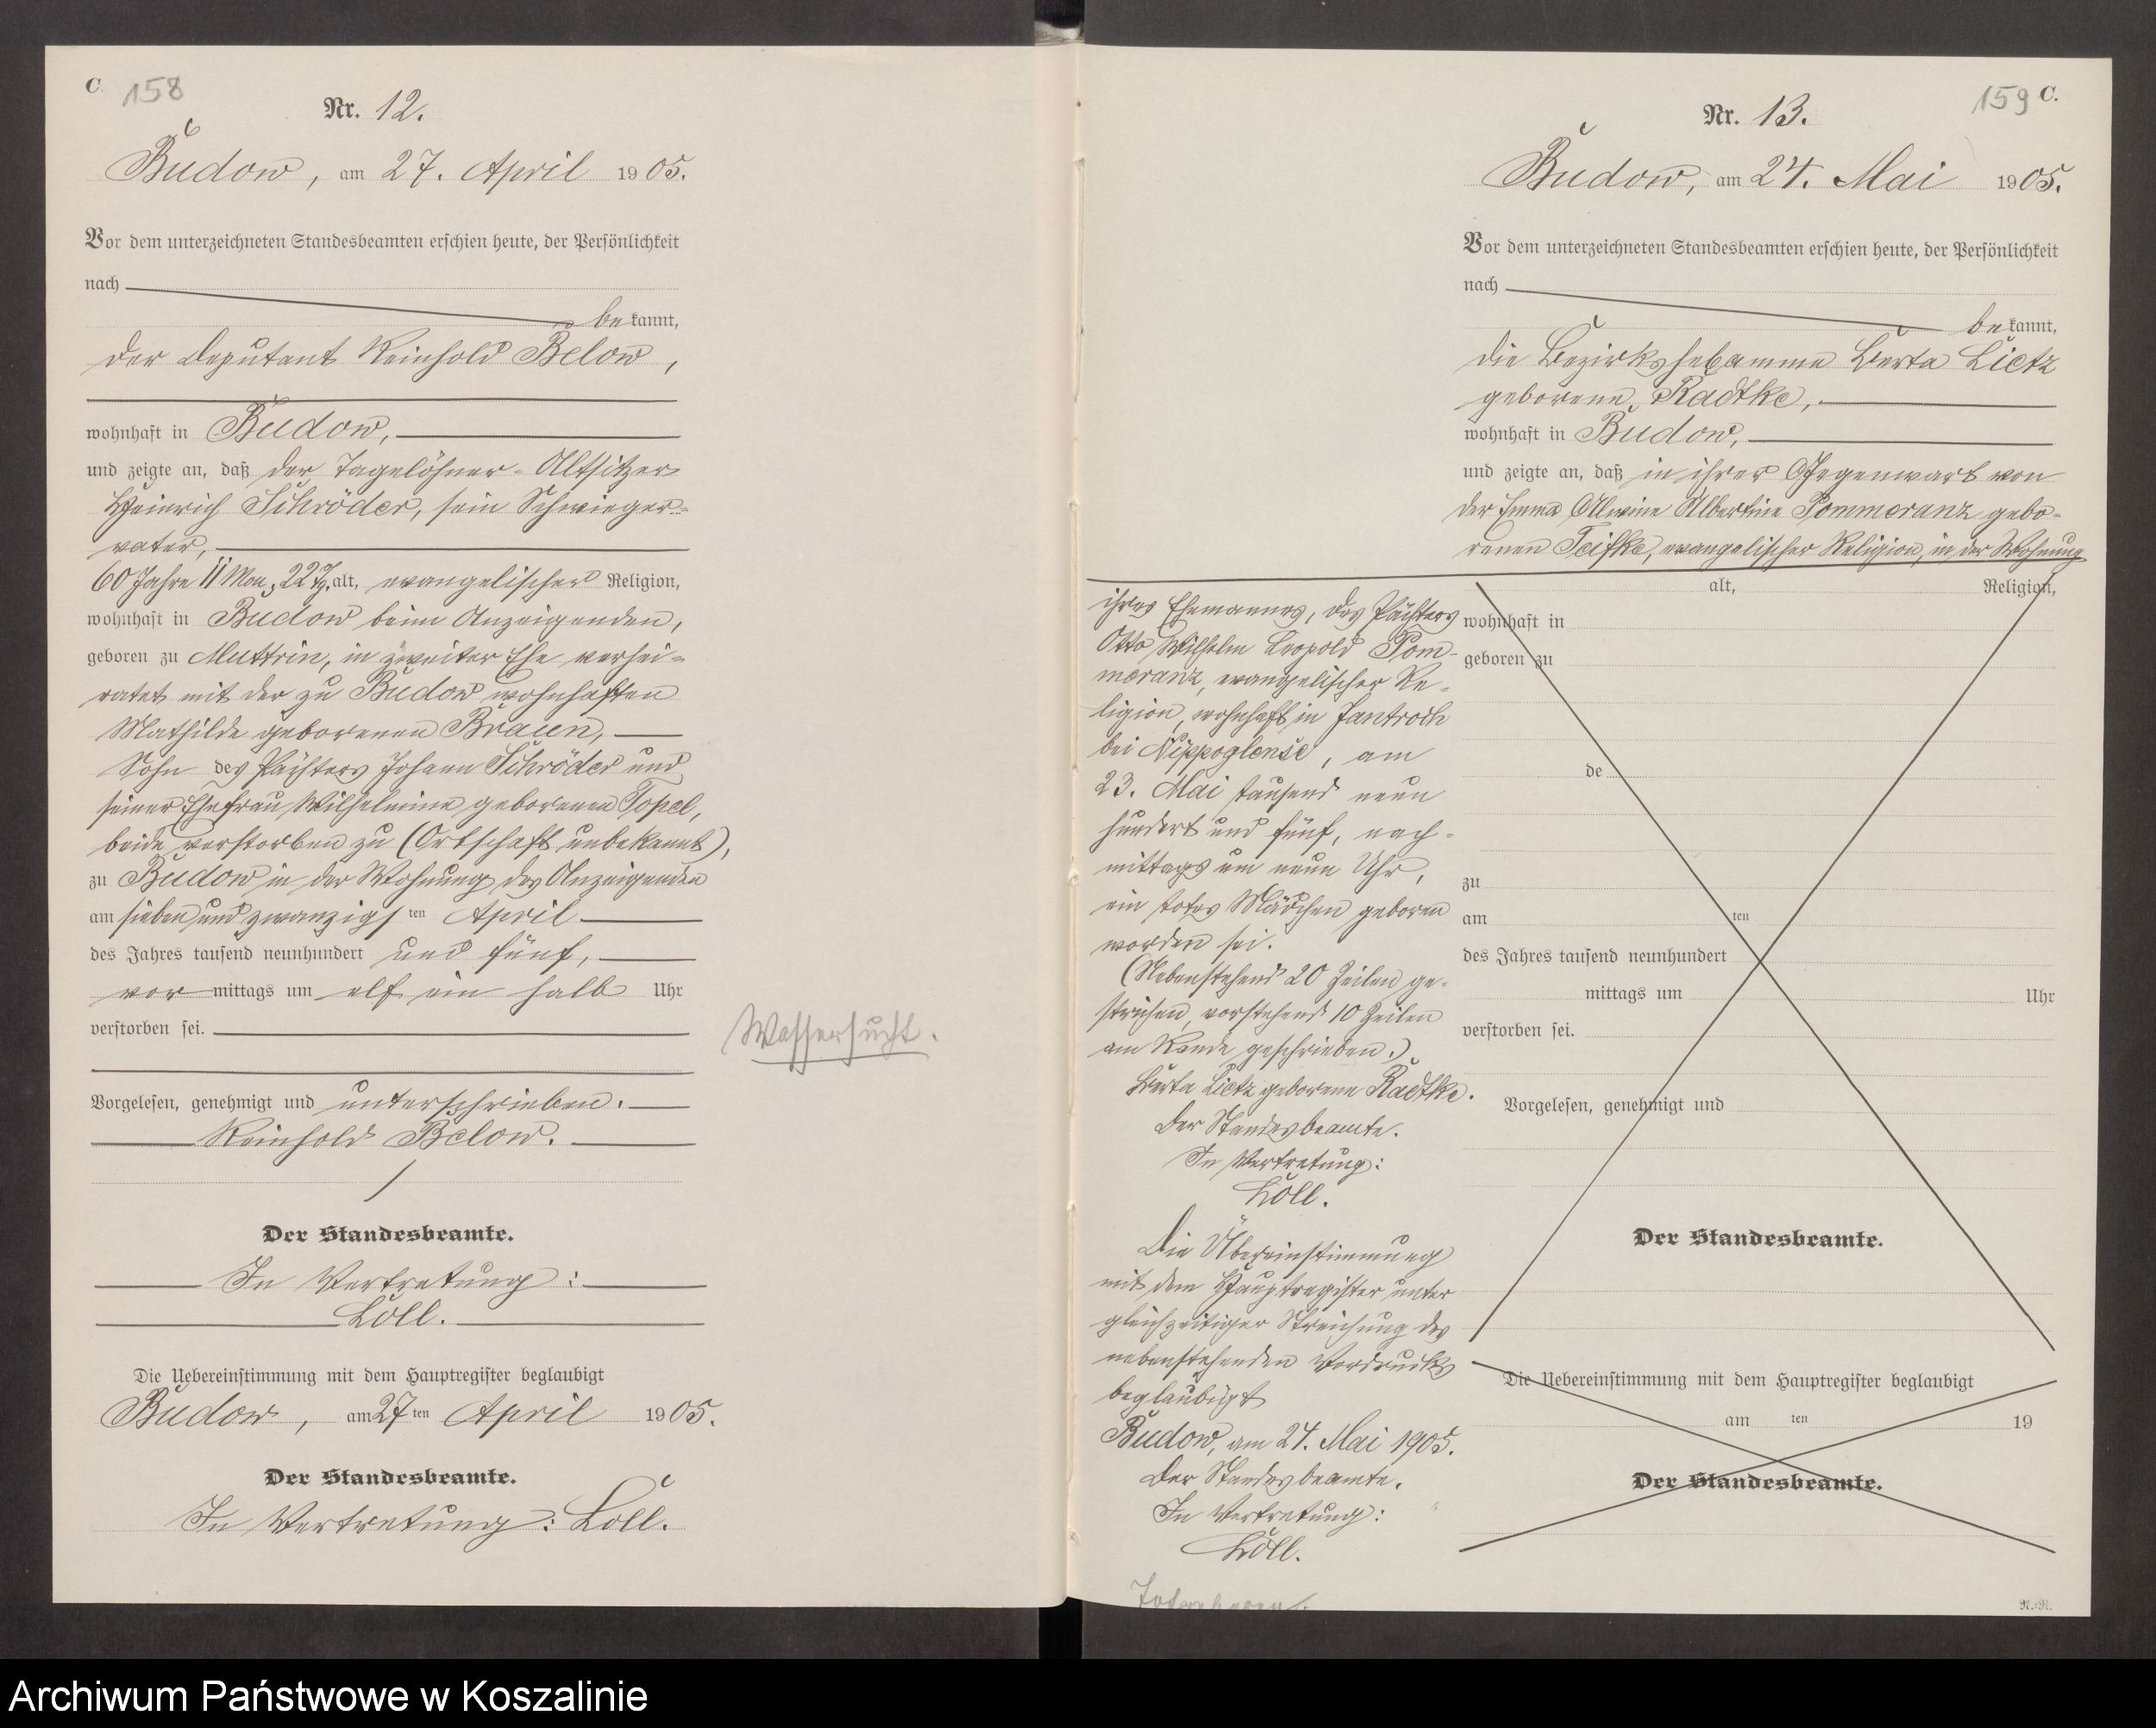 C. 158
Nr. 12.
Budow, am 27. April 1905.
Vor dem unterzeichneten Standesbeamten erschien heute, der Persönlichkeit
nach
bekannt,
der Deputant Reinhold Below,
wohnhaft in Budow,
und zeigte an, daß der Tagelöhner-Altsitzer
Heinrich Schröder, sein Schwieger-
vater,
60 Jahre 11 Mon, 22 T. alt, evangelischer Religion,
wohnhaft in Budow beim Anzeigenden,
geboren zu Muttrin, in zweiter Ehe verhei-
ratet mit der zu Budow wohnhaften
Mathilde geborenen Braun,
Sohn des Pächters Johann Schröder und
seiner Ehefrau Wilhelmine geborenen Topel,
beide verstorben zu (Ortschaft unbekannt),
zu Budow in der Wohnung des Anzeigenden
am sieben und zwanzigsten April
des Jahres tausend neunhundert und fünf,
vormittags um elf ein halb Uhr
verstorben sei.
Wassersucht.
Vorgelesen, genehmigt und unterschrieben.
Reinhold Below.
Der Standesbeamte.
In Vertretung:
Loll.
Die Uebereinstimmung mit dem Hauptregister beglaubigt
Budow, am 27ten April 1905.
Der Standesbeamte.
In Vertretung: Loll.
159 C.
Nr. 13.
Budow, am 24. Mai 1905.
Vor dem unterzeichneten Standesbeamten erschien heute, der Persönlichkeit
nach
bekannt,
die Bezirkshebamme Berta Lietz
geborene Radtke,
wohnhaft in Budow,
und zeigte an, daß in ihrer Gegenwart von
der Emma Alwine Albertine Pommeranz gebo-
renen Teifke, evangelischer Religion, in der Wohnung
ihres Ehemannes, des Pächters
Otto Wilhelm Leopold Pom-
meranz, evangelischer Re-
ligion, wohnhaft in Jantroch
bei Nippoglense, am
23. Mai tausend neun
hundert und fünf, nach-
mittags um neun Uhr,
ein totes Mädchen geboren
worden sei.
(Nebenstehend 20 Zeilen ge-
strichen, vorstehend 10 Zeilen
am Rande geschrieben.)
Berta Lietz geborene Radtke.
Der Standesbeamte.
In Vertretung:
Loll.
Die Übereinstimmung
mit dem Hauptregister unter
gleichzeitiger Streichung des
nebenstehenden Vordrucks
beglaubigt
Budow, am 24. Mai 1905.
Der Standesbeamte.
In Vertretung:
Loll.
alt, Religion,
wohnhaft in
geboren zu
de
zu
am ten
des Jahres tausend neunhundert
mittags um Uhr
verstorben sei.
Vorgelesen, genehmigt und
Der Standesbeamte.
Die Uebereinstimmung mit dem Hauptregister beglaubigt
am ten 19
Der Standesbeamte.
Archiwum Państwowe w Koszalinie